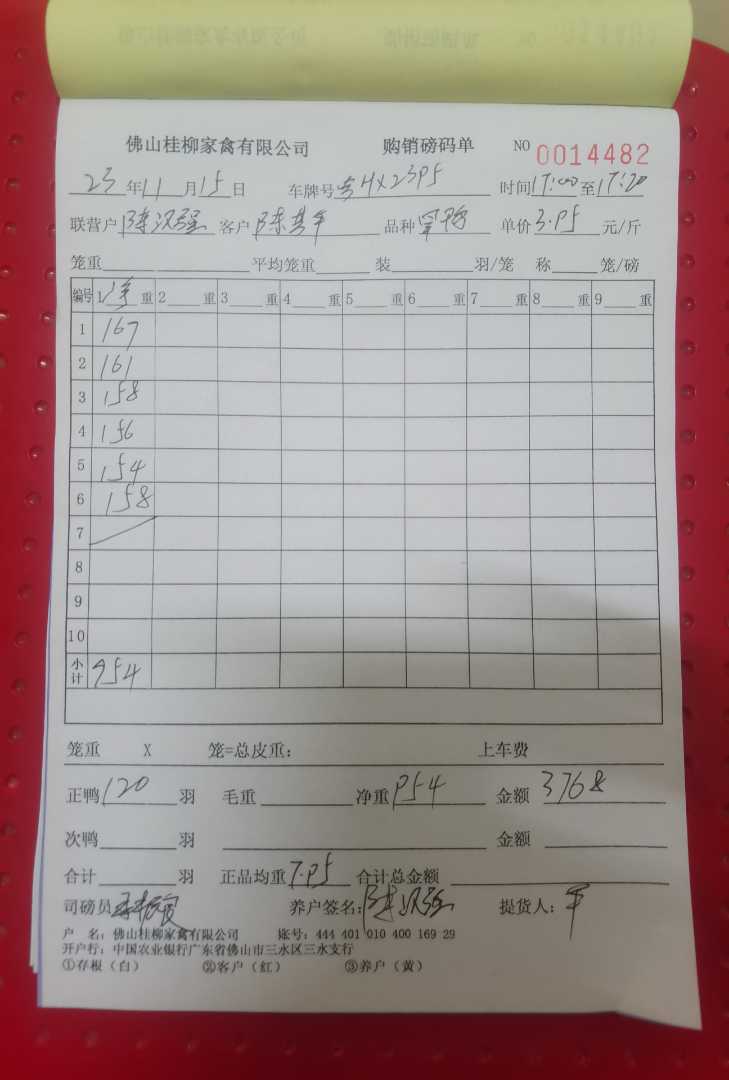 佛山桂柳家禽有限公司 购销磅码单 NO 0014482
23年11月15日 车牌号 4X2395 时间17:00至17:20
联营户 陈汉强 客户 陈其 品种 单价3.95元/斤
笼重 平均笼重 装 羽/笼 称 笼/磅
编号 1 净重 2 重 3 重 4 重 5 重 6 重 7 重 8 重 9 重
1 167
2 161
3 158
4 156
5 154
6 158
7
8
9
10
小计 954
笼重 X 笼=总皮重: 上车费
正鸭120羽 毛重 净重954 金额3768
次鸭 羽 金额
合计 羽 正品均重7.95 合计总金额
司磅员 养户签名:陈汉强 提货人:
户 名: 佛山桂柳家禽有限公司 账号: 444 401 010 400 169 29
开户行: 中国农业银行广东省佛山市三水区三水支行
①存根(白) ②客户(红) ③养户(黄)